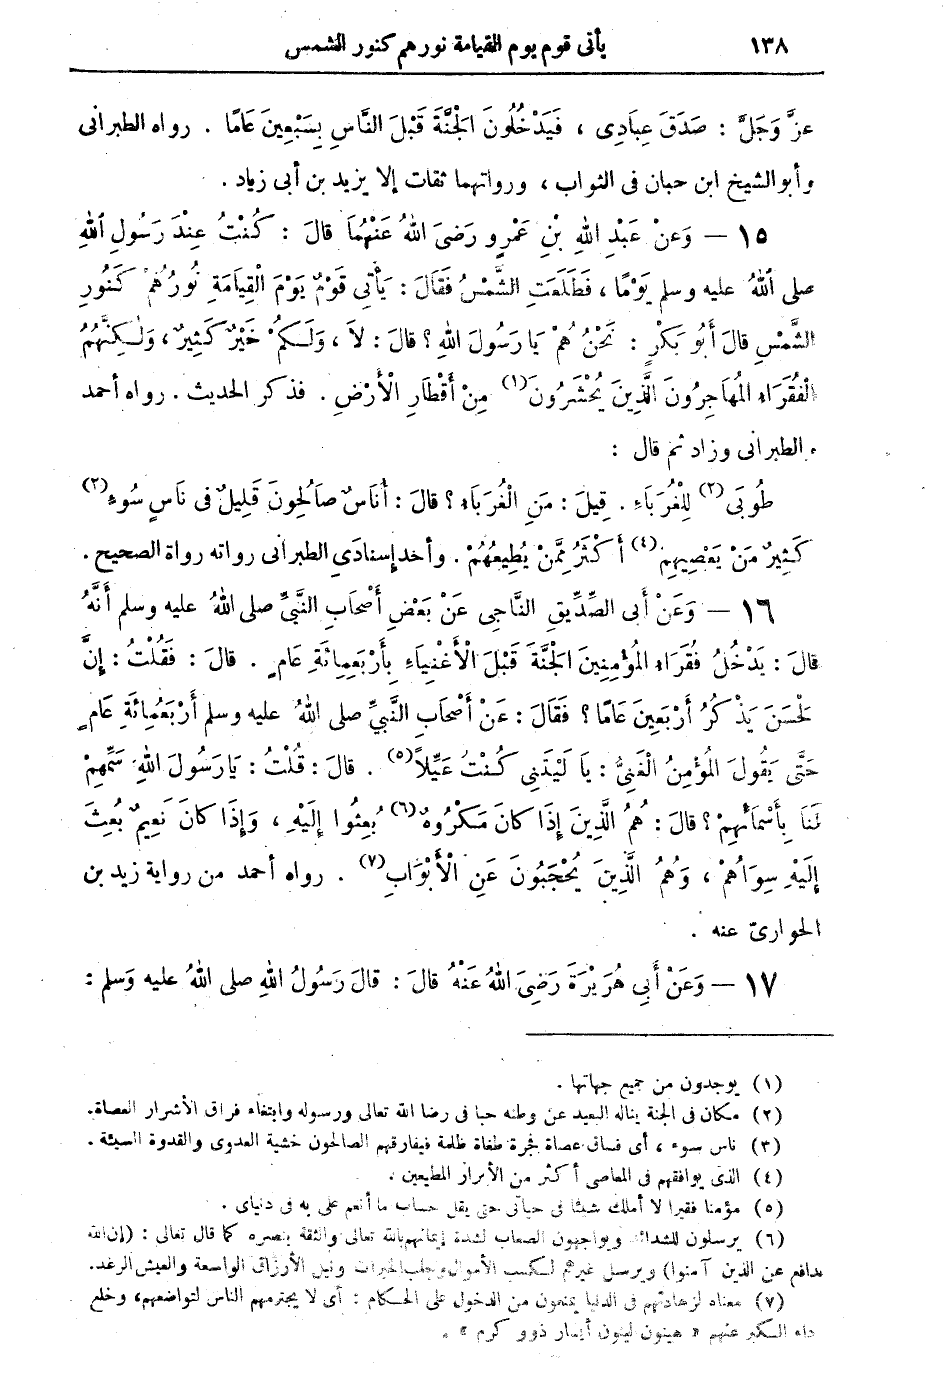 ١٣٨ يأتى قوم يوم القيامة نورهم كنور الشمس
عزَّ وَجَلَّ : صَدَقَ عِبَادِى ، فَيَدْخُلُونَ الْجَنَّةَ قَبْلَ النَّاسِ بِسَبْعِينَ عَامًا . رواه الطبرانى
وأبو الشيخ ابن حبان فى الثواب ، ورواتهما ثقات إلا يزيد بن أبى زياد .
١٥ – وَعَنْ عَبْدِ اللهِ بْنِ عَمْرٍو رَضِىَ اللهُ عَنْهُمَا قالَ : كُنْتُ عِنْدَ رَسُولِ اللهِ
صلى اللهُ عليه وسلم يَوْمًا ، فَطَلَعَتِ الشَّمْسُ فَقَالَ : يَأْتِى قَوْمٌ يَوْمَ الْقِيَامَةِ نُورُهُمْ كَنُورِ
الشَّمْسِ قالَ أَبُو بَكْرٍ : نَحْنُ هُمْ يَا رَسُولَ اللهِ ؟ قالَ : لاَ ، وَلَكُمْ خَيْرٌ كَثِيرٌ ، وَلٰكِنَّهُمُ
الْفُقَرَاءُ الْمُهَاجِرُونَ الَّذِينَ يُحْشَرُونَ (١) مِنْ أَقْطَارِ الْأَرْضِ . فذكر الحديث . رواه أحمد
والطبرانى وزاد ثم قال :
طُوبَى (٢) لِلْغُرَبَاءِ . قِيلَ : مَنِ الْغُرَبَاءُ ؟ قالَ : أُنَاسٌ صَالِحُونَ قَلِيلٌ فى نَاسِ سُوءٍ (٣)
كَثِيرٌ مَنْ يَعْصِيهِمْ (٤) أَكْثَرُ مِمَّنْ يُطِيعُهُمْ . وأحد إسنادَي الطبرانى رواته رواة الصحيح .
١٦ – وَعَنْ أَبى الصِّدِّيقِ النَّاجِى عَنْ بَعْضِ أَصْحَابِ النَّبِىِّ صلى اللهُ عليه وسلم أَنَّهُ
قالَ : يَدْخُلُ فُقَرَاءُ الْمُؤْمِنِينَ الْجَنَّةَ قَبْلَ الْأَغْنِيَاءِ بِأَرْبَعِمِائَةِ عَامٍ . قالَ : فَقُلْتُ : إِنَّ
الْحَسَنَ يَذْكُرُ أَرْبَعِينَ عَامًا ؟ فَقَالَ : عَنْ أَصْحَابِ النَّبِىِّ صلى اللهُ عليه وسلم أَرْبَعُمِائَةِ عَامٍ
حَتَّى يَقُولَ الْمُؤْمِنُ الْغَنِىُّ : يَا لَيْتَنِى كُنْتُ عَيِّلاً (٥) . قالَ : قُلْتُ : يَا رَسُولَ اللهِ سَمِّهِمْ
لَنَا بِأَسْمَائِهِمْ ؟ قالَ : هُمُ الَّذِينَ إِذَا كَانَ مَكْرُوهٌ (٦) بُعِثُوا إِلَيْهِ ، وَإِذَا كَانَ نَعِيمٌ بُعِثَ
إِلَيْهِ سِوَاهُمْ ، وَهُمُ الَّذِينَ يُحْجَبُونَ عَنِ الْأَبْوَابِ (٧) . رواه أحمد من رواية زيد بن
الحوارىّ عنه .
١٧ – وَعَنْ أَبِي هُرَيْرَةَ رَضِىَ اللهُ عَنْهُ قَالَ : قالَ رَسُولُ اللهِ صلى اللهُ عليه وَسلم :
(١) يوجدون من جميع جهاتها .
(٢) مكان فى الجنة يناله البعيد عن وطنه حبا فى رضا الله تعالى ورسوله وابتغاء فراق الأشرار العصاة.
(٣) ناس سوء ، أى فساق عصاة فجرة طغاة ظلمة فيفارقهم الصالحون خشية العدوى والقدوة السيئة .
(٤) الذى يوافقهم فى المعاصى أكثر من الأبرار المطيعين .
(٥) مؤمنا فقيرا لا أملك شيئا فى حياتى حتى يقل حساب ما أنعم على به فى دنياى .
(٦) يرسلون للشدائد ويواجهون الصعاب لشدة إيمانهم بالله تعالى والثقة بنصره كما قال تعالى : (إن الله
يدافع عن الذين آمنوا) ويرسل غيرهم لكسب الأموال وجلب الخيرات ونيل الأرزاق الواسعة والعيش الرغد.
(٧) معناه لزهادتهم فى الدنيا يمنعون من الدخول على الحكام : أى لا يحترمهم الناس لتواضعهم، وخلع
داء الكبر عنهم « هينون لينون أيسار ذوو كرم » .